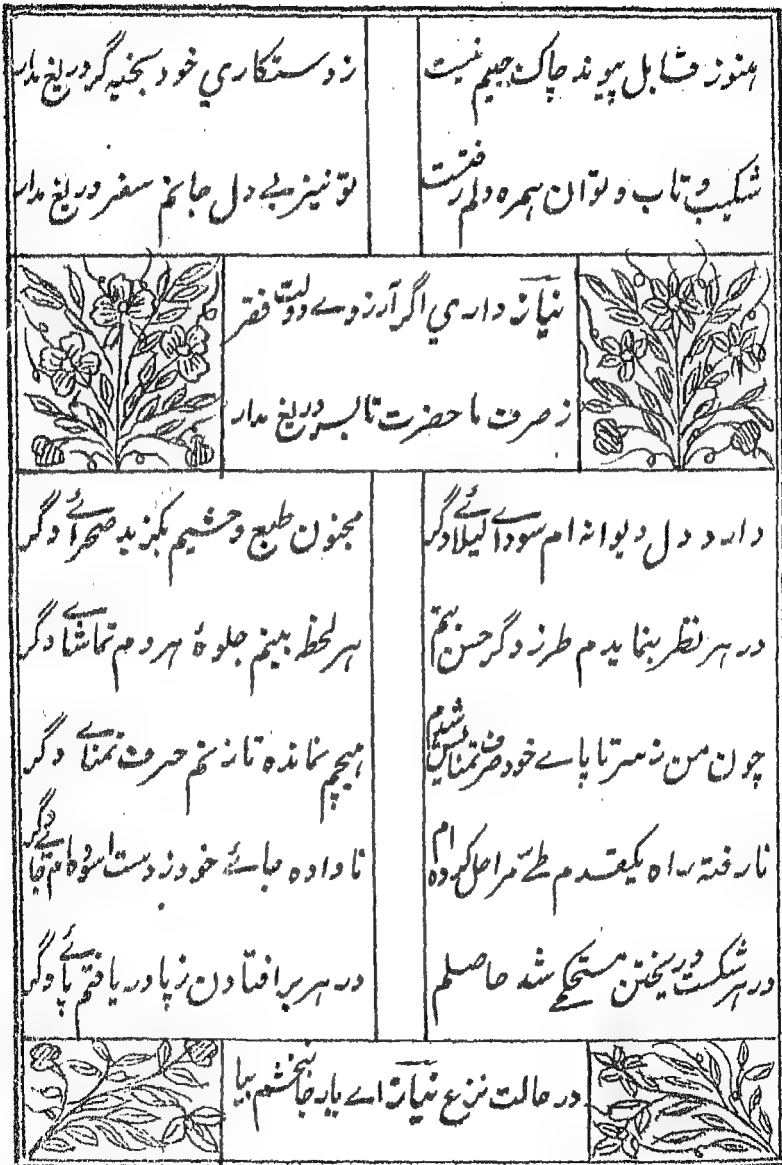 هنوز قابل پیوند چاک جیبم نیست
ز دستکاري خود بخیه گر دریغ مدار
شکیب و تاب و توان همره دلم رفتست
تو نیز بے دل جانم سفر دریغ مدار
نیاز داري اگر آرزوے دولت فقر
ز صرف ما حضرت تا بسر دریغ مدار
دارد دل دیوانه ام سوداے لیلائے دگر
مجنون طبع وحشیم بگزید صحرائے دگر
در هر نظر بنمایدم طرز دگر حسن بتم
هر لحظه بینم جلوهٔ هر دم تماشاے دگر
چون من ز سر تا پاے خود صرف تمنایش شدم
هیچم نمانده تا زنم حرف تمناے دگر
نارفته راه یکقدم طے مراحل کرده ام
ناداده جائے خود ز دست آسوده ام جائے دگر
در هر شکست و ریختن مستحکمے شد حاصلم
در هر بر افتادن ز پا دریافتم پائے دگر
در حالت نزع نیاز اے یار جانبخشم بیا